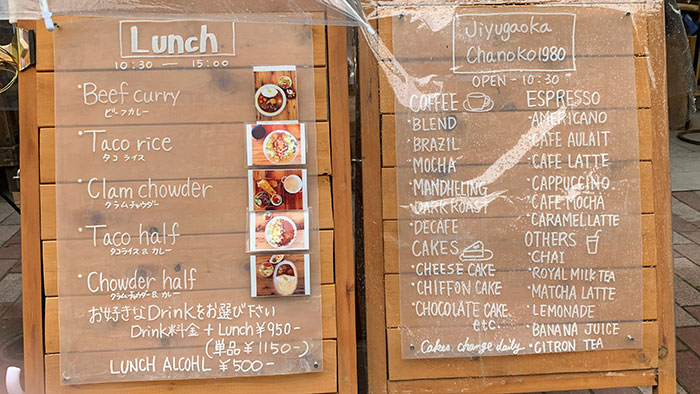 Lunch
10:30 — 15:00
・Beef curry
ビーフカレー
・Taco rice
タコライス
・Clam chowder
クラムチャウダー
・Taco half
タコライス & カレー
・Chowder half
クラムチャウダー & カレー
お好きなDrinkをお選び下さい
Drink料金 + Lunch ¥950-
(単品 ¥1150-)
LUNCH ALCOHL ¥500-
Jiyugaoka
Chanoko1980
OPEN - 10:30 -
COFFEE
・BLEND
・BRAZIL
・MOCHA
・MANDHELING
・DARK ROAST
・DECAFE
CAKES
・CHEESE CAKE
・CHIFFON CAKE
・CHOCOLATE CAKE
etc.
Cakes change daily
ESPRESSO
・AMERICANO
・CAFE AULAIT
・CAFE LATTE
・CAPPUCCINO
・CAFE MOCHA
・CARAMELLATTE
OTHERS
・CHAI
・ROYAL MILK TEA
・MATCHA LATTE
・LEMONADE
・BANANA JUICE
・CITRON TEA